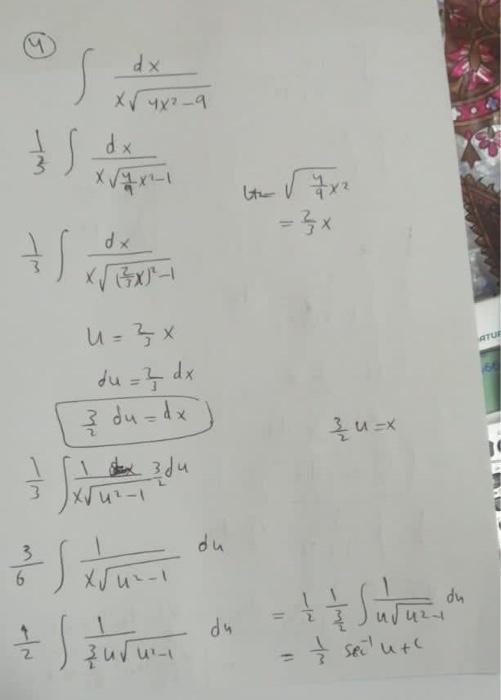 4
∫ dx / x√(4x²-9)
1/3 ∫ dx / x√(4/9 x²-1)
√(4/9 x²)
= 2/3 x
1/3 ∫ dx / x√((2/3 x)²-1)
u = 2/3 x
du = 2/3 dx
3/2 du = dx
3/2 u = x
1/3 ∫ 1 / x√(u²-1) 3/2 du
3/6 ∫ 1 / x√(u²-1) du
1/2 ∫ 1 / (3/2 u√(u²-1)) du
= 1/2 1/(3/2) ∫ 1 / u√(u²-1) du
= 1/3 sec⁻¹ u + C